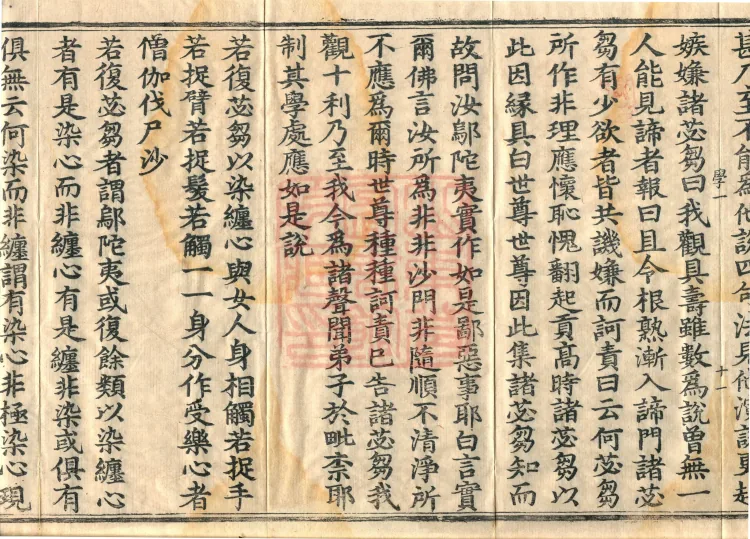 甚乃至不能為他說四句法
學一
十一
嫉嫌諸苾芻曰我觀具壽雖數為說曾無一
人能見諦者報曰且今根熟漸入諦門諸苾
芻有少欲者皆共譏嫌而訶責曰云何苾芻
所作非理應懷恥愧翻起貢高時諸苾芻以
此因緣具白世尊世尊因此集諸苾芻知而
故問汝鄔陀夷實作如是鄙惡事耶白言實
爾佛言汝所為非非沙門非隨順不清淨所
不應為爾時世尊種種訶責已告諸苾芻我
觀十利乃至我今為諸聲聞弟子於毗柰耶
制其學處應如是說
若復苾芻以染纏心與女人身相觸若捉手
若捉臂若捉髮若觸一一身分作受樂心者
僧伽伐尸沙
若復苾芻者謂鄔陀夷或復餘類以染纏心
者有是染心而非纏心有是纏非染或俱有
俱無云何染而非纏謂有染心非極染心現